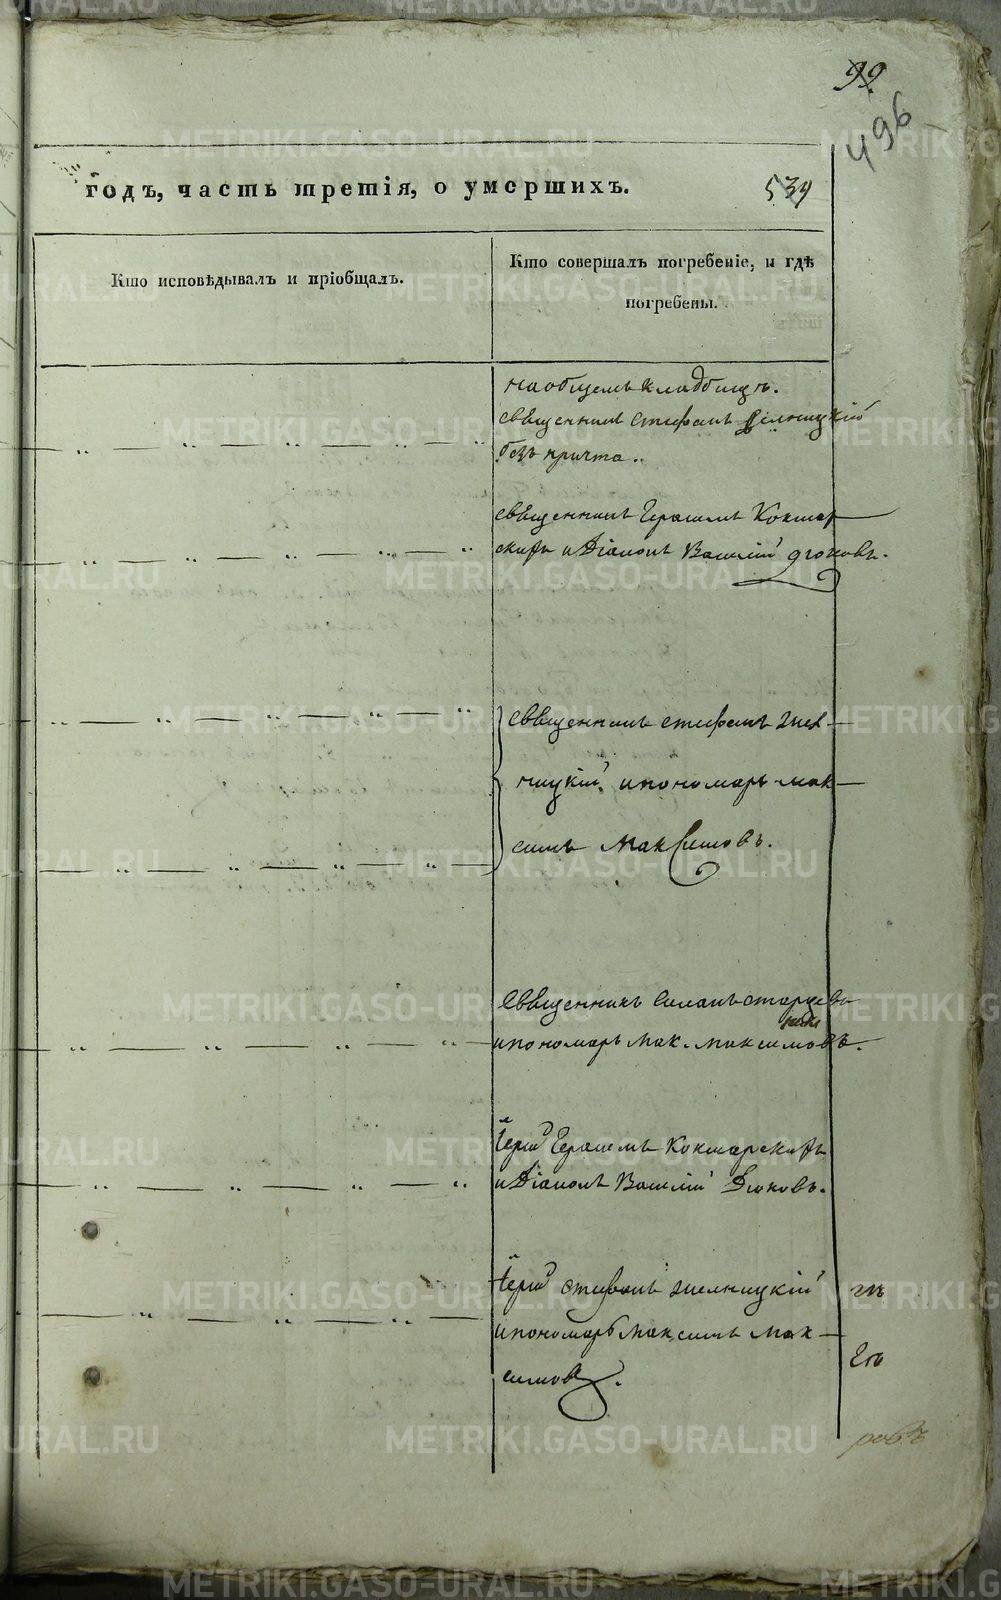 99.
496
годъ, часть третія, о умершихъ.
539
Кто исповѣдывалъ и пріобщалъ.
Кто совершалъ погребеніе, и гдѣ
погребены.
на общемъ кладбищѣ.
священникъ Стефанъ
безъ причта.
священникъ Герасимъ Кокшар
скихъ и Діаконъ Василій Дюковъ.
священникъ Стефанъ
ницкій и пономарь Мак
симъ Максимовъ.
Священникъ Симонъ Старцевъ
и пономарь Мак. Максимовъ.
Іерей Герасимъ Кокшарскихъ
и Діаконъ Василій Дюковъ.
Іерей Стефанъ
и пономарь Максимъ Мак
симов.
METRIKI.GASO-URAL.RU